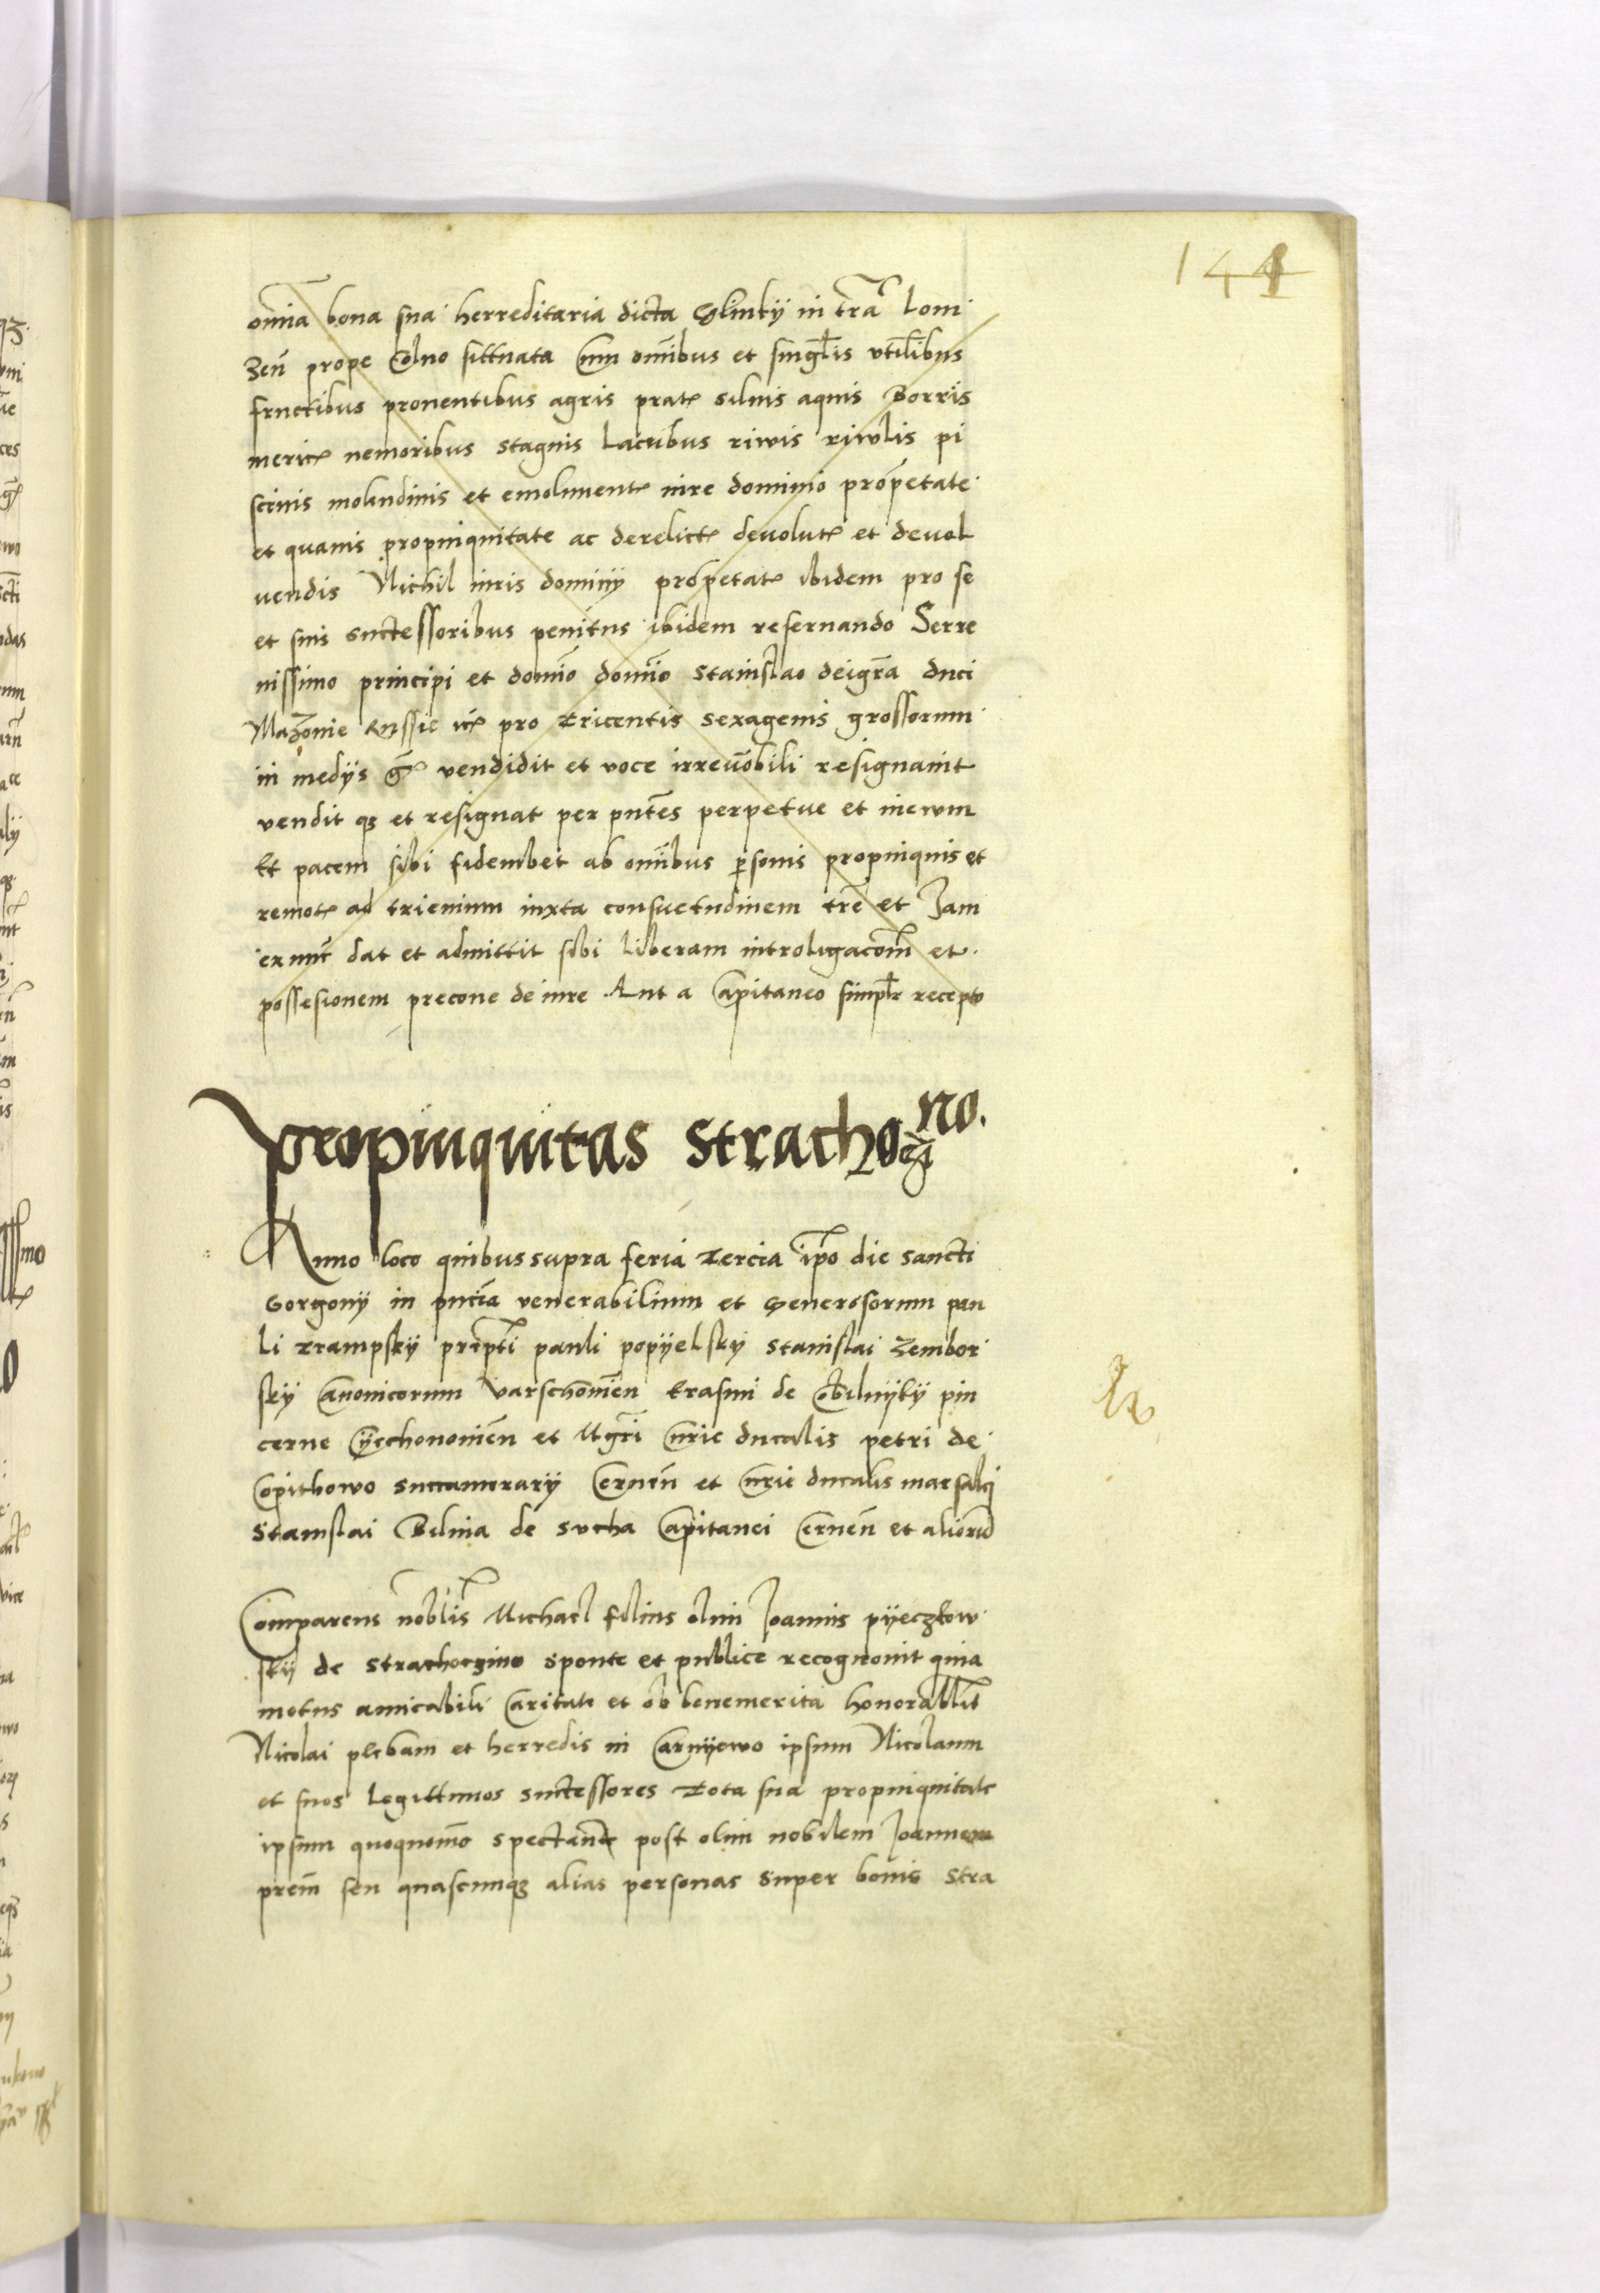 144
omnia bona sua herreditaria dicta Glinky in trra Lom
zen̄ prope Colno sittuata cum om̄ibus et singłis vtilibus
fructibus prouentibus agris prat silvis aquis Borris
meric nemoribus stagnis Lacubus riwis riwlis pi
scinis molendinis et emolument iure dominio prop̄etate
et quauis propinquitate ac derelict deuolut et devol
uendis Nichil iuris dominy prop̄etat ibidem pro se
et suis successoribus penitus ibidem reseruando Serre
nissimo principi et domi͞o domi͞o Stanislao dei gr̄a duci
Mazouie Russie etc pro Tricentis sexagenis grossorum
in medys gr vendidit et voce irreuobili resignauit
vendit qz et resignat per pn̄tes perpetue et in ewm
Et pacem sibi fidembet ab om̄ibus p̄sonis propinquis et
remot ad trienium iuxta consuetudinem trr̄e et Jam
ex nunc dat et admittit sibi liberam introligacōm et
possesionem precone de iure Aut a Capitaneo simplr recepto
propinquitas Strachozino.
Anno loco quibus supra feria Tercia ip̄o die sancti
Gorgony in pn̄cia venerabilium et Generosorum pau
li Krampsky prepti pauli popyelsky Stanislai Zembor
sky Canonicorum Varschouien̄ Erasmi de Obilnyky pin
cerne Cyechonouien̄ et Mgri Curie ducalis petri de
Copithowo Succamerary Cernen̄ et Curie ducalis marsalci
Stanislai Bilina de sucha Capitanei Cernen̄ et aliorū
Comparens nobłis Michael filius olim Joannis pyeczkow
sky de Strachoczino sponte et publice recognouit quia
motus amicabili Caritate et ob benemerita honorabłis
Nicolai plebani et herredis in Carnyewo ipsum Nicolaum
et suos Legittimos successores Tota sua propinquitate
ipsum quoquomō spectand post olim nobilem Joannem
prēm seu quascumqz alias personas super bonis Stra